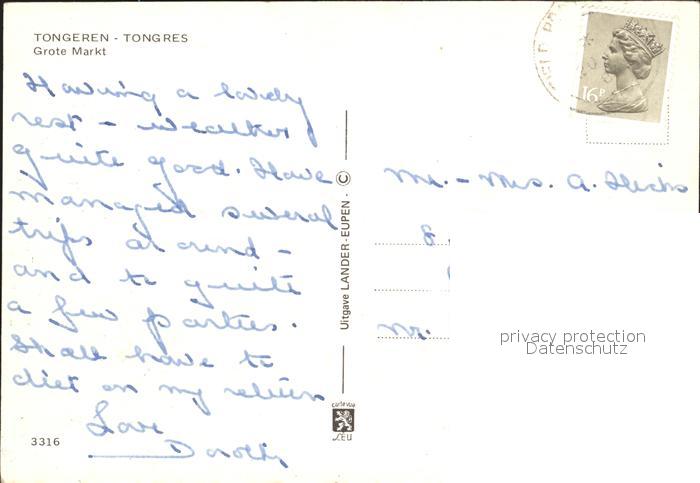 TONGEREN - TONGRES
Grote Markt
Having a lovely
rest - weather
quite good. Have
managed several
trips around -
and to quite
a few parties.
Shall have to
diet on my return
Love
Dorothy
3316
Uitgave LANDER-EUPEN - ©
cartevue
LEU
16P
Mr. - Mrs. A. Hicks
8
Nr.
privacy protection
Datenschutz